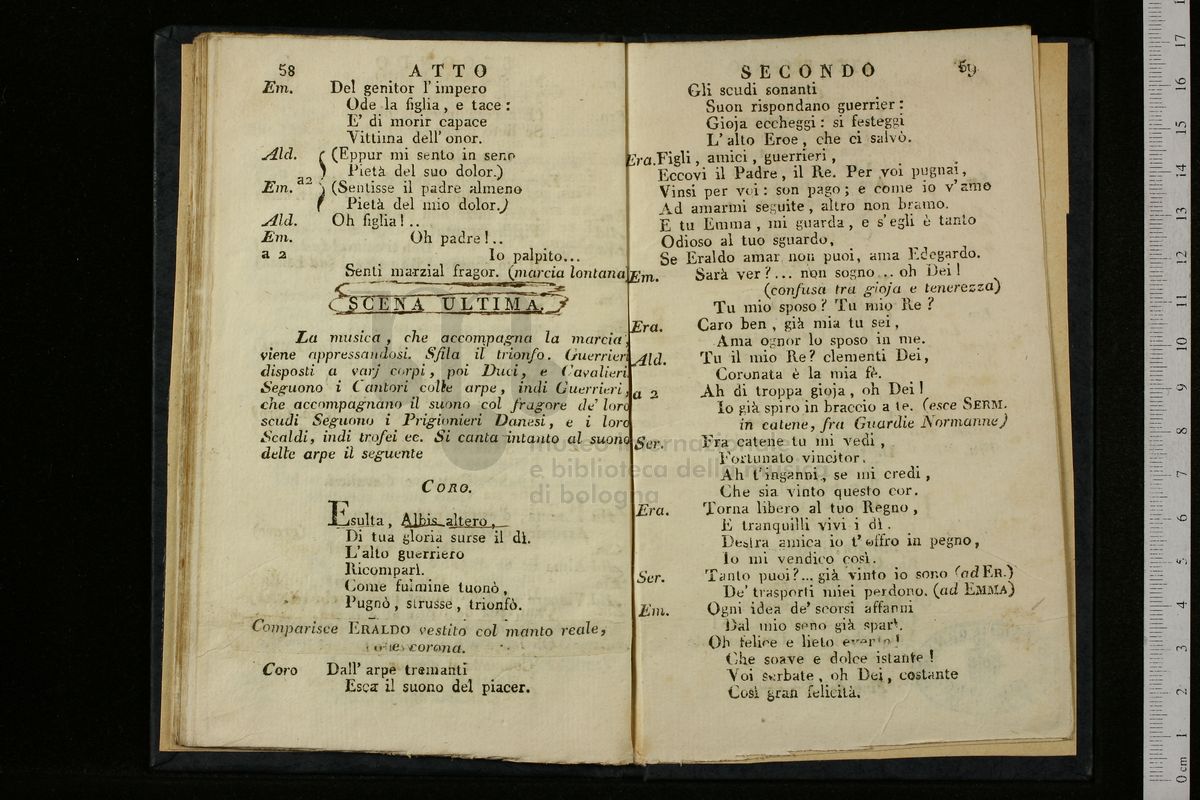 58 ATTO
Em. Del genitor l'impero
Ode la figlia, e tace:
E' di morir capace
Vittima dell' onor.
Ald. (Eppur mi sento in seno
Pietà del suo dolor.)
a2
Em. (Sentisse il padre almeno
Pietà del mio dolor.)
Ald. Oh figlia!..
Em. Oh padre!..
a 2 Io palpito...
Senti marzial fragor. (marcia lontana
SCENA ULTIMA.
La musica, che accompagna la marcia,
viene appressandosi. Sfila il trionfo. Guerrieri
disposti a varj corpi, poi Duci, e Cavalieri.
Seguono i Cantori colle arpe, indi Guerrieri,
che accompagnano il suono col fragore de' loro
scudi Seguono i Prigionieri Danesi, e i loro
Scaldi, indi trofei ec. Si canta intanto al suono
delle arpe il seguente
CORO.
Esulta, Albis altero,
Di tua gloria surse il dì.
L'alto guerriero
Ricomparì.
Come fulmine tuonò,
Pugnò, strusse, trionfò.
Comparisce ERALDO vestito col manto reale,
corona.
Coro Dall' arpe tremanti
Esca il suono del piacer.
SECONDO 59
Gli scudi sonanti
Suon rispondano guerrier:
Gioja eccheggi: si festeggi
L'alto Eroe, che ci salvò.
Era. Figli, amici, guerrieri,
Eccovi il Padre, il Re. Per voi pugnai,
Vinsi per voi: son pago; e come io v'amo
Ad amarmi seguite, altro non bramo.
E tu Emma, mi guarda, e s'egli è tanto
Odioso al tuo sguardo,
Se Eraldo amar non puoi, ama Edegardo.
Em. Sarà ver?... non sogno... oh Dei!
(confusa tra gioja e tenerezza)
Tu mio sposo? Tu mio Re?
Era. Caro ben, già mia tu sei,
Ama ognor lo sposo in me.
Ald. Tu il mio Re? clementi Dei,
Coronata è la mia fè.
a 2 Ah di troppa gioja, oh Dei!
Io già spiro in braccio a te. (esce SERM.
in catene, fra Guardie Normanne)
Ser. Fra catene tu mi vedi,
Fortunato vincitor.
Ah t'inganni, se mi credi,
Che sia vinto questo cor.
Era. Torna libero al tuo Regno,
E tranquilli vivi i dì.
Destra amica io t'offro in pegno,
Io mi vendico così.
Ser. Tanto puoi?... già vinto io sono (ad ER.)
De' trasporti miei perdono. (ad EMMA)
Em. Ogni idea de' scorsi affanni
Dal mio seno già sparì.
Oh felice e lieto evento!
Che soave e dolce istante!
Voi serbate, oh Dei, costante
Così gran felicità.
museo internazionale
e biblioteca della musica
di bologna
0 cm 1 2 3 4 5 6 7 8 9 10 11 12 13 14 15 16 17